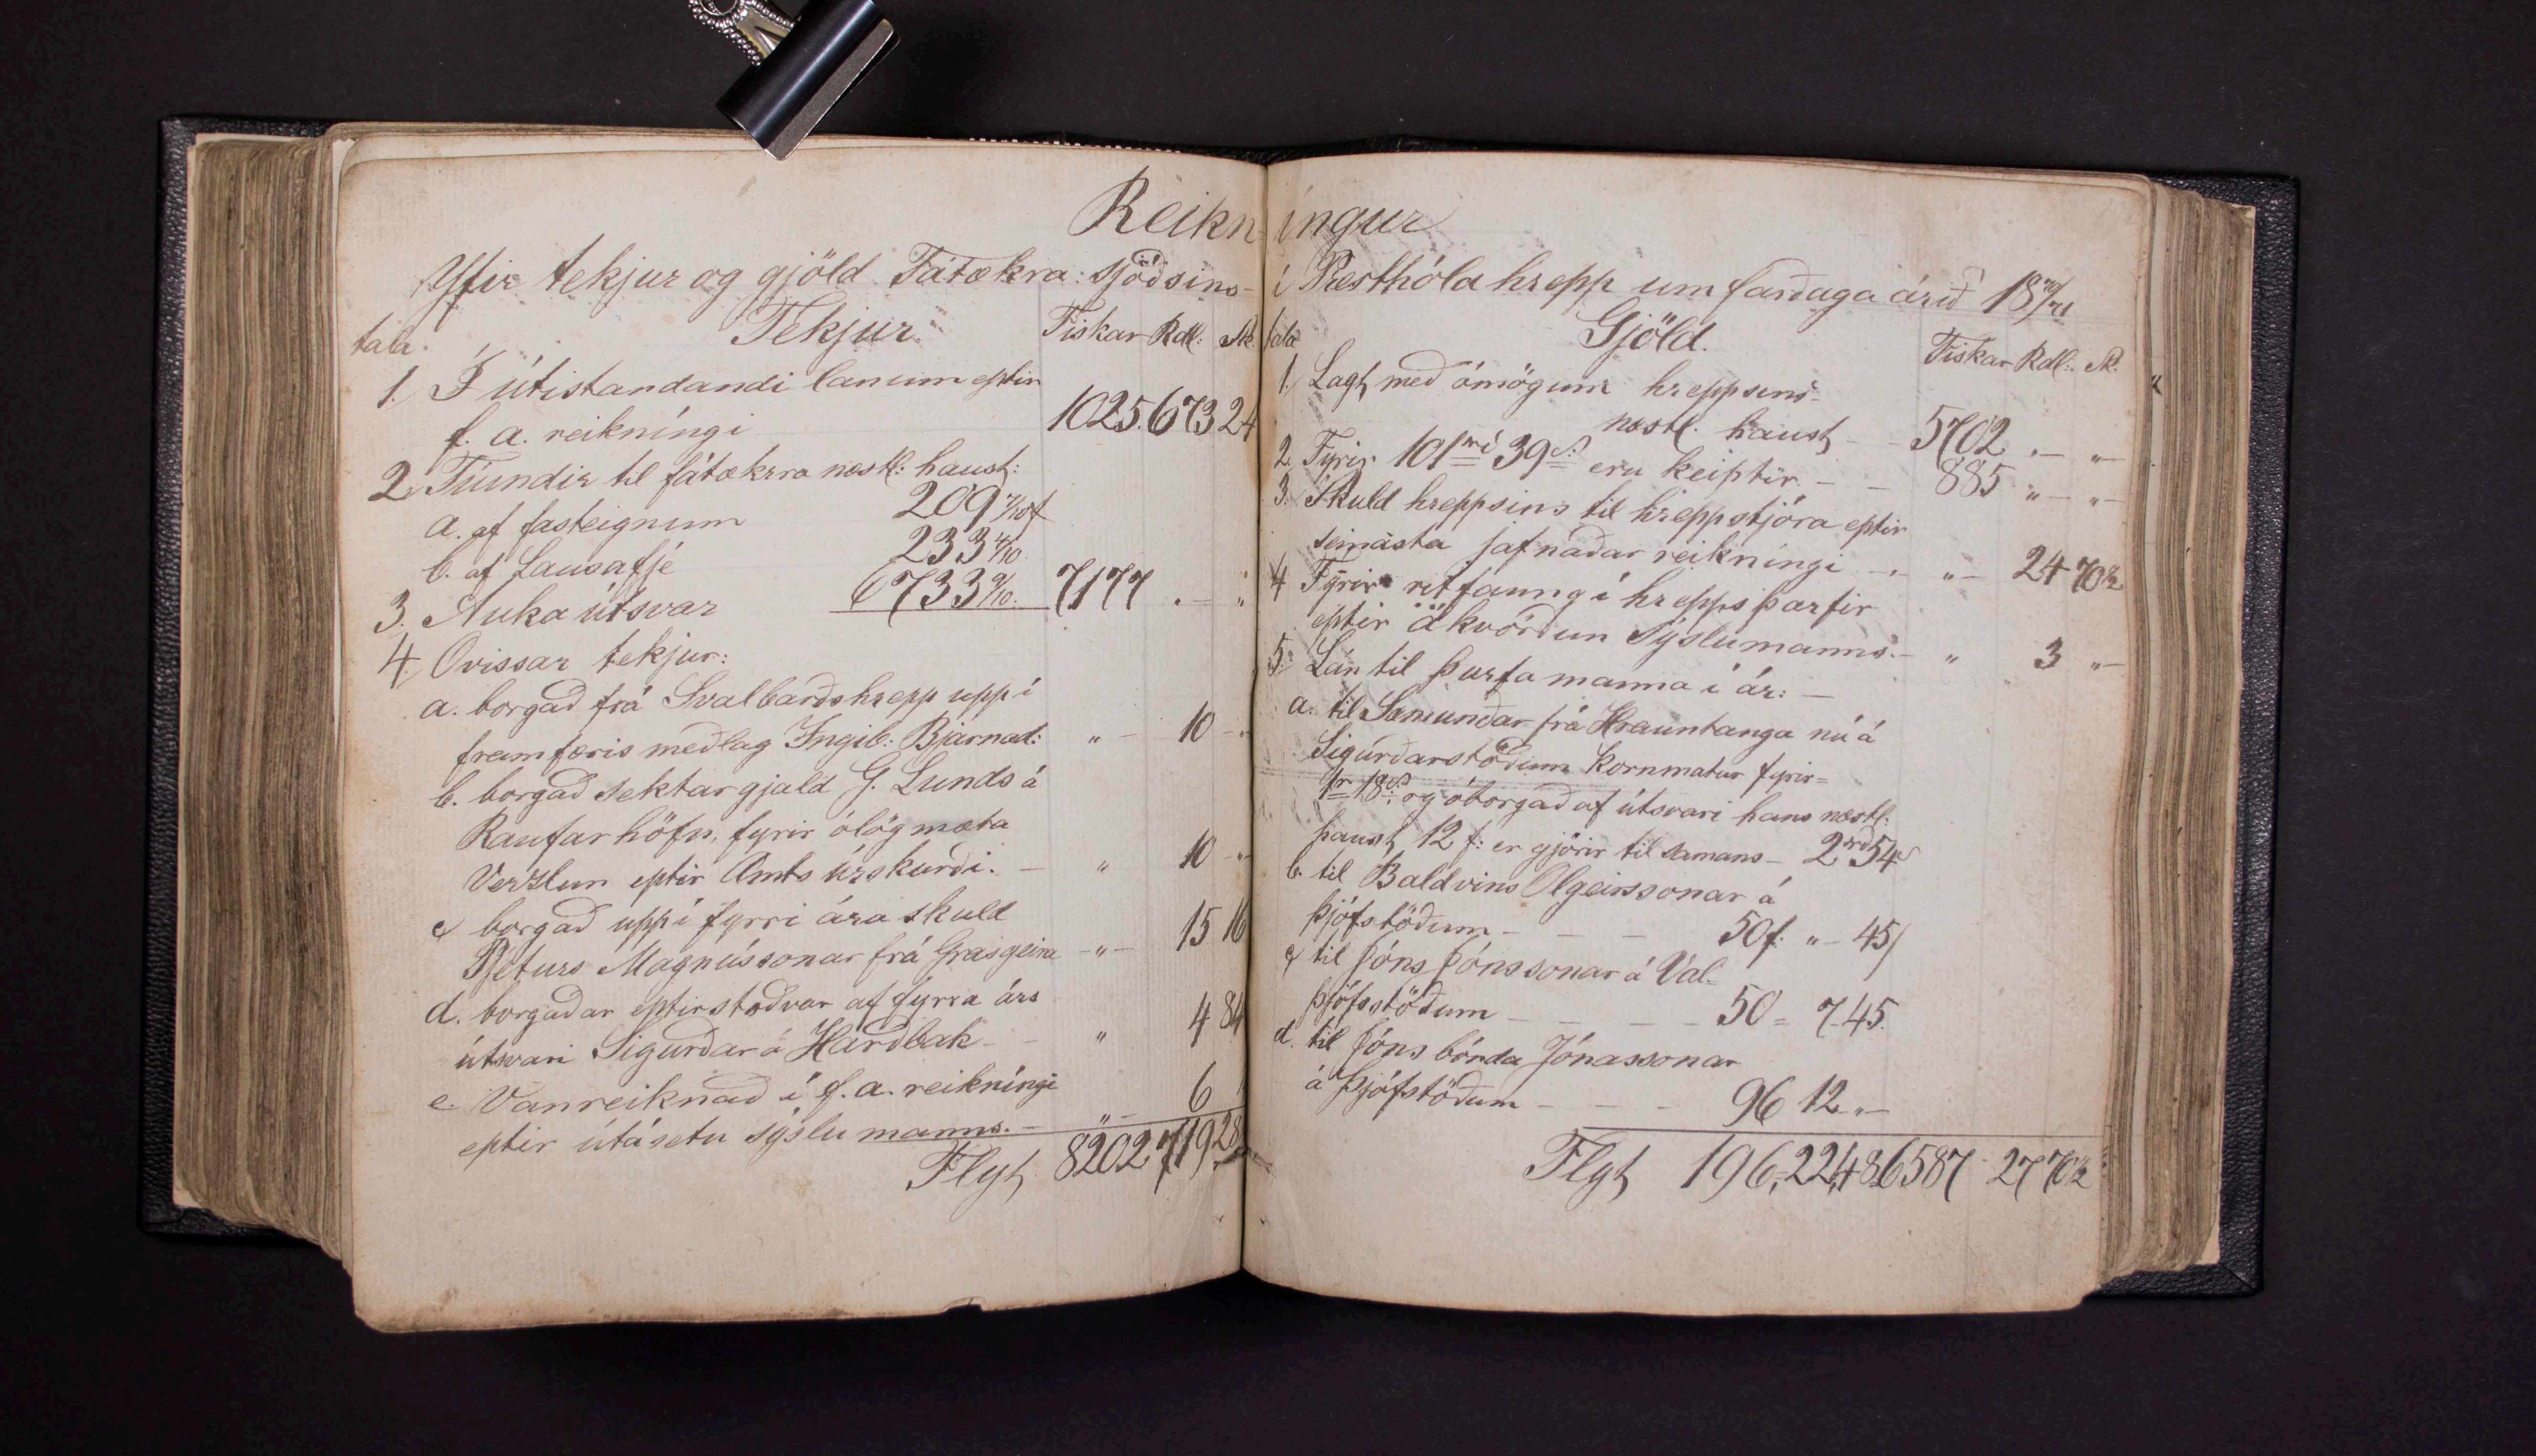 Reikningur
Yfir tekjur og gjöld Fátækra-sjóðsins
tala Tekjur. Fiskar Rdl: Sk.
1. Í útistandandi lanum eptir
f. a. reikníngi 1025. 673 24
2. Tíundir til fátækrra næstl: haust:
a. af fasteignum 209 7/10 f
b. af Lausafjé 233 4/10.
3. Auka útsvar 6733 9/10. 7177 . — "
4. Ovissar tekjur:
a. borgað frá Svalbarðshrepp upp í
framfæris meðlag Ingib: Bjarnad: " — 10 — "
b. borgað sektargjald G. Lunds á
Raufarhöfn, fyrir ólögmæta
Verzlun eptir Amts úrskurði. — " 10 — "
c borgað uppí fyrri ára skuld
Pjeturs Magnússonar frá Grasgeira — " — 15 16
d. borgaðar eptirstoðvar af fyrra árs
útsvari Sigurðar á Harðbak — " 4 84
e. Vanreiknað í f. a. reikníngi
eptir útásetu sýslumanns. — " — 6
Flyt 8202 719 28
í Presthóla hrepp um farðaga árið 18 70/71
tala Gjöld. Fiskar Rdl: Sk.
1. Lagt með ómögum hreppsins
næstl. haust — 5702 . — "
2. Fyrir 101 rd 39 s: eru keiptir — — 885 " — " —
3. Skuld hreppsins til hreppstjóra eptir
seinasta jafnaðar reikníngi — . " — 24 70 1/2
4 Fyrir ritfaung í hrepps þarfir
eptir ákvörðun Sýslumanns. — " 3 " —
5. Lán til þurfamanna í ár: —
a. til Sæmundar frá Hrauntanga nú á
Sigurðarstöðum kornmatur fyrir
1r 18s: og óborgað af útsvari hans næstl:
haust 12 f: er gjörir til samans — 2rd 54s
b. til Baldvins Olgeirssonar á
Þjófstöðum — — — 50 f: " — 45/
c til Jóns Jónssonar á Val-
þjófsstöðum — — — 50 = 7-45.
d. til Jóns bónda Jónassonar
á Þjófstöðum — — — 96 12 " —
Flyt 196,, 22,, 48 6587 27 70 1/2